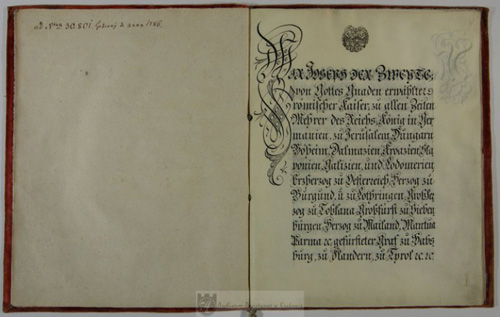 ad Num 30.801.
WIR JOSEPH DER ZWEYTE,
von Gottes Gnaden erwählter
römischer Kaiser, zu allen Zeiten
Mehrer des Reichs, König in Ger
manien, zu Jerusalem, Hungarn
Böheim, Dalmazien, Kroazien, Sla
vonien, Galizien, und Lodomerien
Erzherzog zu Oesterreich, Herzog zu
Burgund, u. zu Lothringen, Großher
zog zu Toskana, Großfürst zu Sieben
bürgen, Herzog zu Mailand, Mantua
Parma ec. gefürsteter Graf zu Habs
burg, zu Flandern, zu Tyrol ec. ec.
Archiwum